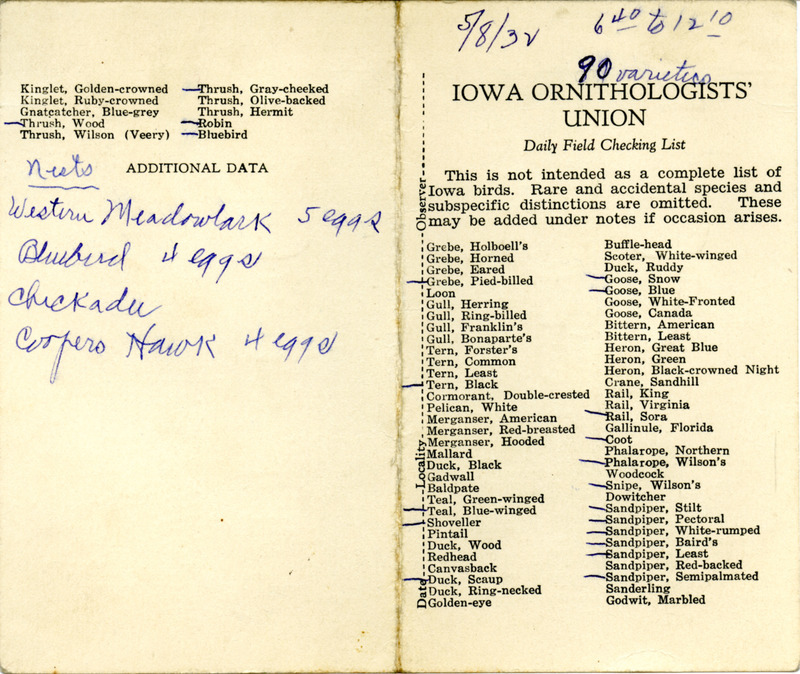 Kinglet, Golden-crowned
Kinglet, Ruby-crowned
Gnatcatcher, Blue-grey
Thrush, Wood
Thrush, Wilson (Veery)
Thrush, Gray-cheeked
Thrush, Olive-backed
Thrush, Hermit
Robin
Bluebird
Nests
ADDITIONAL DATA
Western Meadowlark 5 eggs
Bluebird 4 eggs
Chickadee
Coopers Hawk 4 eggs
5/8/32
6 40 to 12 10
90 varieties
IOWA ORNITHOLOGISTS'
UNION
Daily Field Checking List
This is not intended as a complete list of
Iowa birds. Rare and accidental species and
subspecific distinctions are omitted. These
may be added under notes if occasion arises.
Date Locality Observer
Grebe, Holboell's
Grebe, Horned
Grebe, Eared
Grebe, Pied-billed
Loon
Gull, Herring
Gull, Ring-billed
Gull, Franklin's
Gull, Bonaparte's
Tern, Forster's
Tern, Common
Tern, Least
Tern, Black
Cormorant, Double-crested
Pelican, White
Merganser, American
Merganser, Red-breasted
Merganser, Hooded
Mallard
Duck, Black
Gadwall
Baldpate
Teal, Green-winged
Teal, Blue-winged
Shoveller
Pintail
Duck, Wood
Redhead
Canvasback
Duck, Scaup
Duck, Ring-necked
Golden-eye
Buffle-head
Scoter, White-winged
Duck, Ruddy
Goose, Snow
Goose, Blue
Goose, White-Fronted
Goose, Canada
Bittern, American
Bittern, Least
Heron, Great Blue
Heron, Green
Heron, Black-crowned Night
Crane, Sandhill
Rail, King
Rail, Virginia
Rail, Sora
Gallinule, Florida
Coot
Phalarope, Northern
Phalarope, Wilson's
Woodcock
Snipe, Wilson's
Dowitcher
Sandpiper, Stilt
Sandpiper, Pectoral
Sandpiper, White-rumped
Sandpiper, Baird's
Sandpiper, Least
Sandpiper, Red-backed
Sandpiper, Semipalmated
Sanderling
Godwit, Marbled